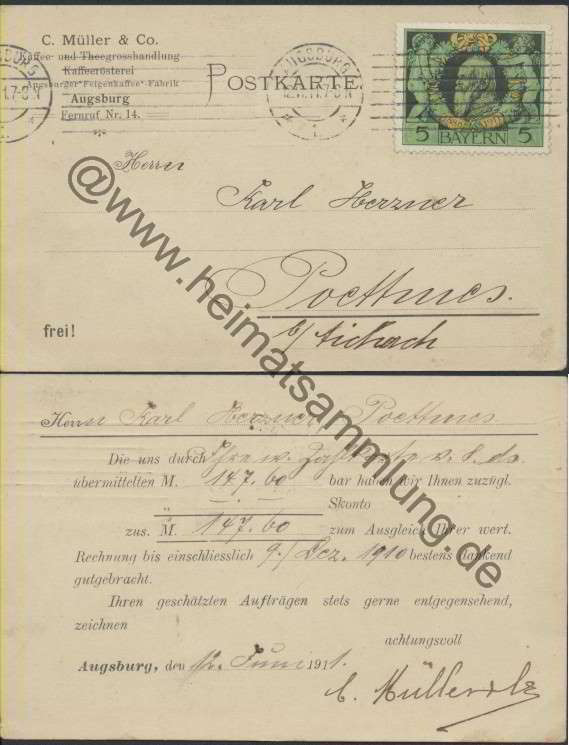 C. Müller & Co.
Kaffee- und Theegrosshandlung
Kaffeerösterei
Augsburger Feigenkaffee-Fabrik
Augsburg
Fernruf Nr. 14.
POSTKARTE.
AUGSBURG
5 BAYERN 5
Herrn
Karl Herzner
Poettmes.
b/ Aichach
frei!
@www.heimatsammlung.de
Herrn Karl Herzner Poettmes
Die uns durch Ihre w. Zahlkarte v. 8. ds.
übermittelten M. 147.60 bar haben wir Ihnen zuzügl.
„ - . - Skonto
zus. M. 147.60 zum Ausgleich Ihrer wert.
Rechnung bis einschliesslich 9./ Dez. 1910 bestens dankend
gutgebracht.
Ihren geschätzten Aufträgen stets gerne entgegensehend,
zeichnen
achtungsvoll
Augsburg, den 12. Juni 1911.
C. Müller & Co